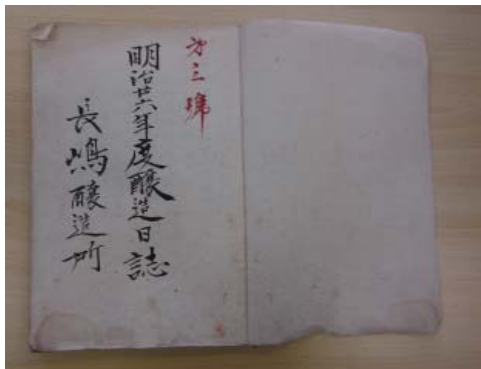 第三號
明治廿六年度醸造日誌
長嶋醸造所